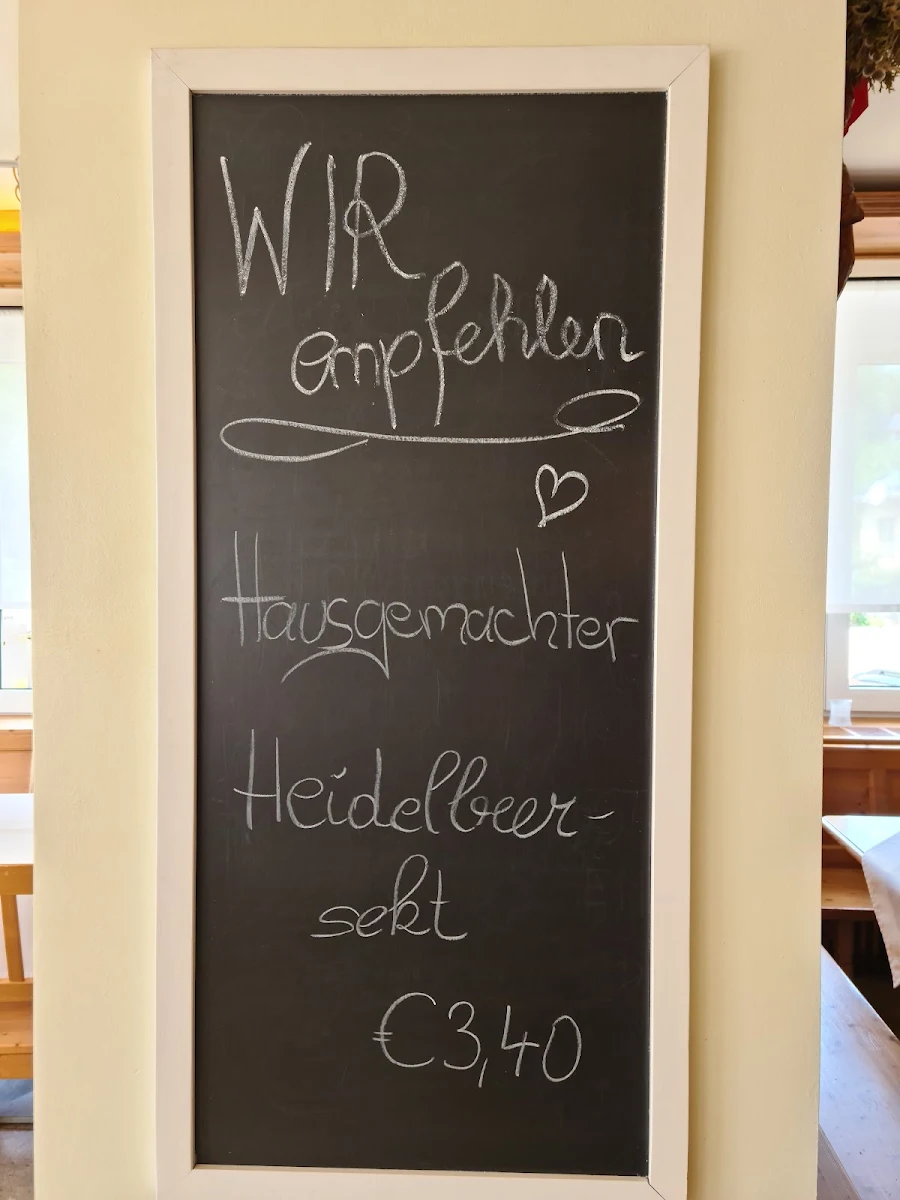 WIR
empfehlen
Hausgemachter
Heidelbeer-
sekt
€3,40